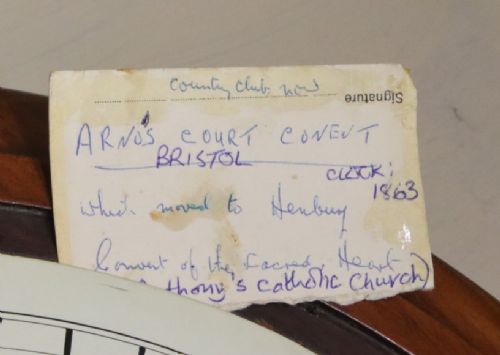 Country Club now
Signature
ARNO'S COURT CONENT
BRISTOL
CLOCK:
1863
which moved to Henbury
Convent of the Sacred Heart
thony's Catholic Church)